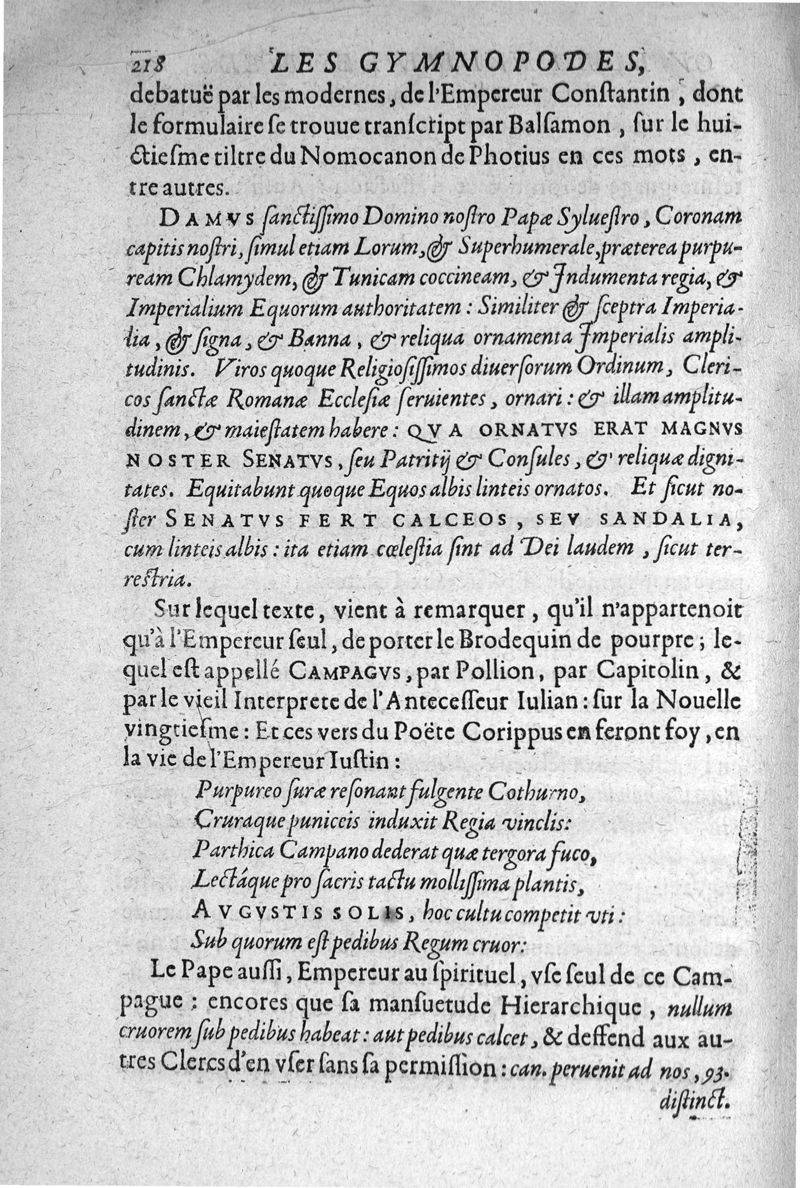 218 LES GYMNOPODES,
debatuë par les modernes, de l'Empereur Conſtantin, dont
le formulaire ſe trouue tranſcript par Balſamon, ſur le hui-
ctieſme tiltre du Nomocanon de Photius en ces mots, en-
tre autres.
DAMVS ſanctiſſimo Domino noſtro Papæ Sylueſtro, Coronam
capitis noſtri, ſimul etiam Lorum, & Superhumerale, præterea purpu-
ream Chlamydem, & Tunicam coccineam, & Indumenta regia, &
Imperialium Equorum authoritatem: Similiter & ſceptra Imperia-
lia, & ſigna, & Banna, & reliqua ornamenta Imperialis ampli-
tudinis. Viros quoque Religioſiſſimos diuerſorum Ordinum, Cleri-
cos ſanctæ Romanæ Eccleſiæ ſeruientes, ornari: & illam amplitu-
dinem, & maieſtatem habere: QVA ORNATVS ERAT MAGNVS
NOSTER SENATVS, ſeu Patritij & Conſules, & reliquæ digni-
tates. Equitabunt quoque Equos albis linteis ornatos. Et ſicut no-
ſter SENATVS FERT CALCEOS, SEV SANDALIA,
cum linteis albis: ita etiam cœleſtia ſint ad Dei laudem, ſicut ter-
reſtria.
Sur lequel texte, vient à remarquer, qu'il n'appartenoit
qu'à l'Empereur ſeul, de porter le Brodequin de pourpre; le-
quel eſt appellé CAMPAGVS, par Pollion, par Capitolin, &
par le vieil Interprete de l'Anteceſſeur Iulian: ſur la Nouelle
vingtieſme: Et ces vers du Poëte Corippus en feront foy, en
la vie de l'Empereur Iuſtin:
Purpureo ſuræ reſonant fulgente Cothurno,
Cruraque puniceis induxit Regia vinclis:
Parthica Campano dederat quæ tergora fuco,
Lectáque pro ſacris tactu molliſſima plantis,
AVGVSTIS SOLIS, hoc cultu competit vti:
Sub quorum eſt pedibus Regum cruor:
Le Pape auſſi, Empereur au ſpirituel, vſe ſeul de ce Cam-
pague: encores que ſa manſuetude Hierarchique, nullum
cruorem ſub pedibus habeat: aut pedibus calcet, & deffend aux au-
tres Clercs d'en vſer ſans ſa permiſſion: can. peruenit ad nos, 93.
diſtinct.